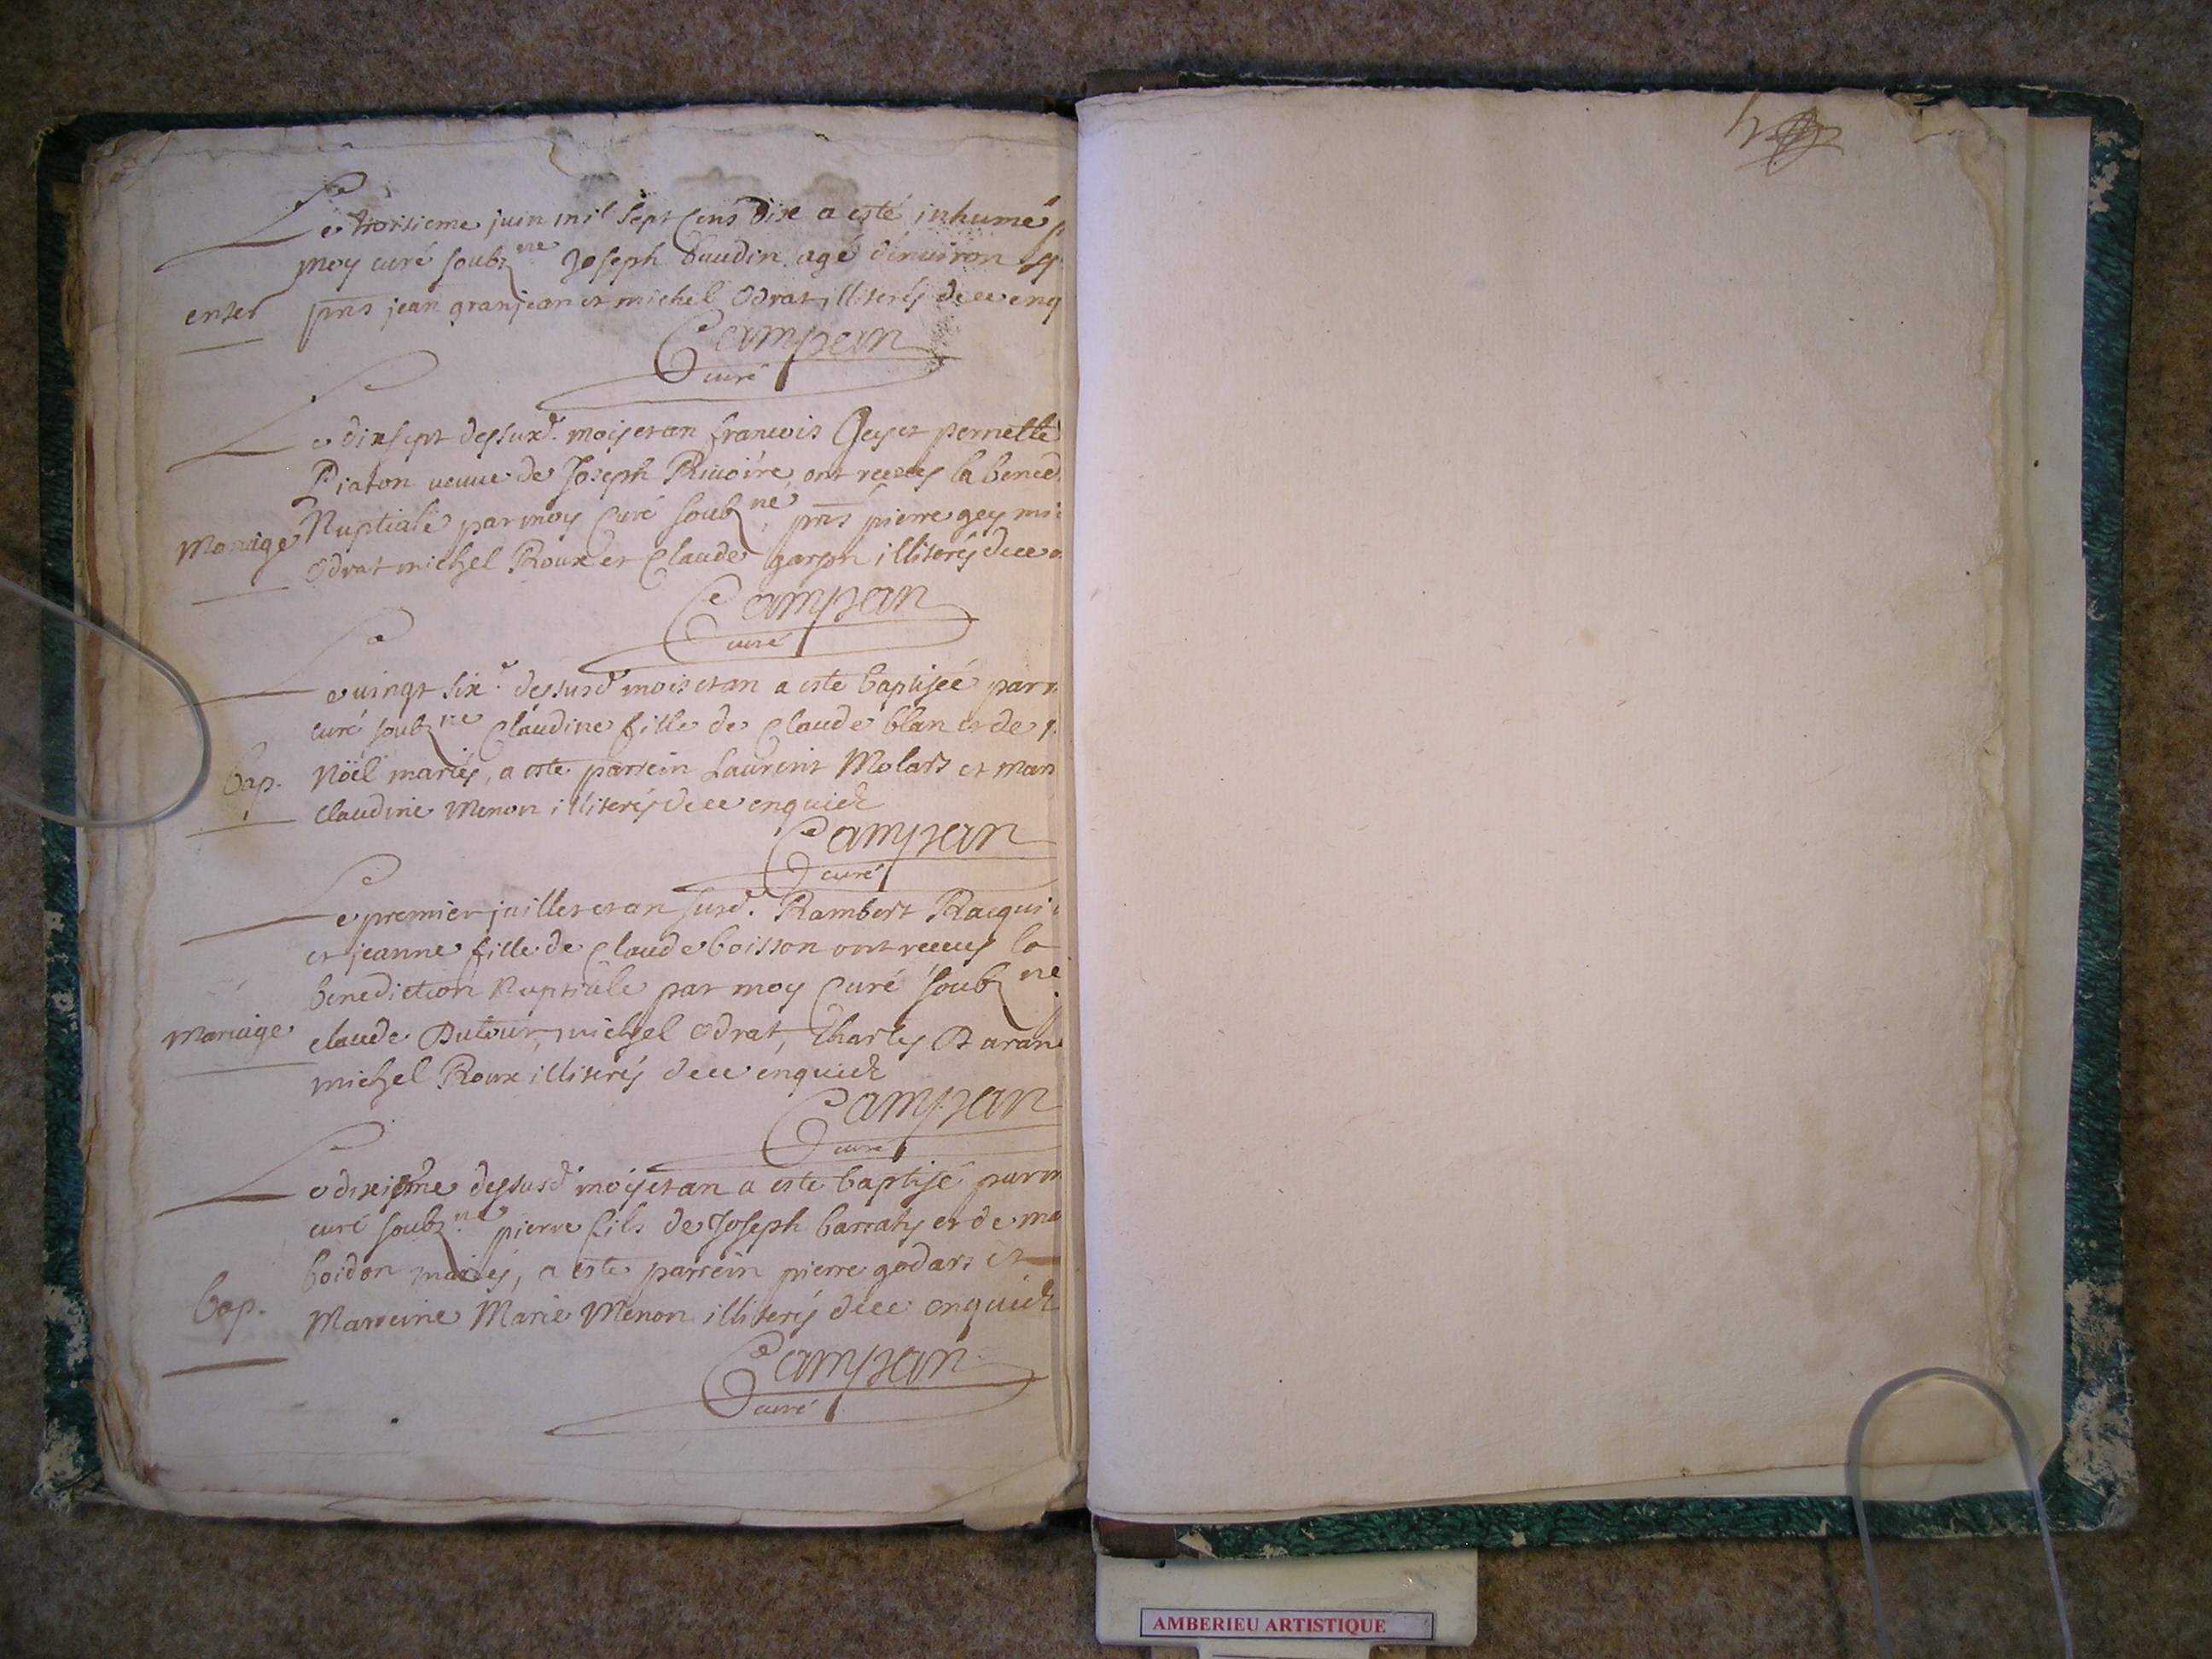 Le troisieme juin mil sept cens dix a esté inhumé p
moy curé soubz.né Joseph baudin agé d'enuiron
enter pnts jean granjean et michel Odrat illiterés de ce enq
Campean
curé
Le dixsept dessusd. mois et an francois Gey et pernette
Piaton ueuue de Joseph Riuoire ont receus la bened
Mariage Nuptiale par moy Curé soubz.né, pnts pierre gey mic
Odrat michel Roux et Claude illiterés de ce
Campean
curé
Le uingt six.e dessusd mois et an a este baptisée par
curé soubz.né Claudine fille de Claude blan et de
bap. Noël mariés, a este parrein Laurent Molard et mar
Claudine Menon illiterés de ce enquict
Campean
curé
Le premier juillet et an susd. Rambert Racqui
et jeanne fille de Claude boisson ont receus la
benediction Nuptiale par moy Curé soubz.né
Mariage claude Dutour, michel Odrat, Charles Baran
michel Roux illiterés de ce enquict
Campean
curé
Le dixieme dessusd mois et an a este baptisé par m
curé soubz.né pierre fils de Joseph barraty et de ma
boidon mariés, a este parrein pierre godard et
bap. Marreine Marie Menon illiterés de ce enquict
Campean
curé
AMBERIEU ARTISTIQUE